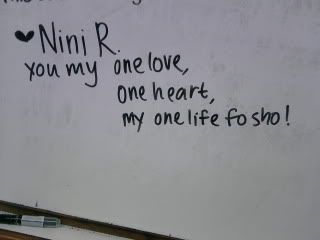 ♥Nini R.
you my one love,
one heart,
my one life fo sho!